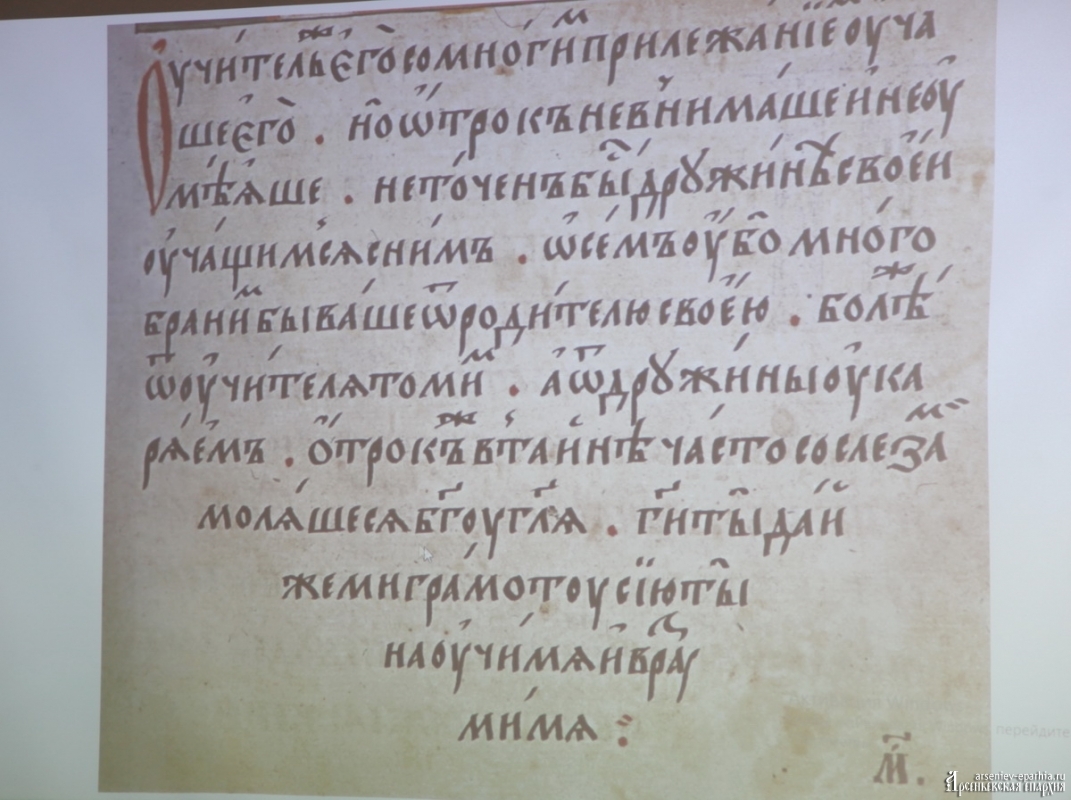 Оучи́тель же є҆го̀ со мно́гиⷨ прилежа́нїеⷨ оуча
ше є҆го̀ . но̑ ѻ҆́трокъ не внима́ше и҆ не оу҆
мѣ́ѧше . не то́ченъ бы́сть дрꙋжи́нѣ свое́й
оуча́щимсѧ с ни́мъ . ѡ҆ се́мъ оу҆́бо мно́го
бра́ниⷨ быва́ше ѿ роди́телю свое́ю . бо́лѣ же
ѿ оу҆чи́телѧ томи́ⷨ . а҆ ѿ дрꙋжи́ны оу҆ка
рѧ́емъ . ѻ҆́трокъ же в та́йнѣ ча́сто со слеза́ми
молѧ́шесѧ бг҃оу гл҃ѧ . гн҃и ты̀ да́й
же ми гра́мотоу сїю̀ ты̀
наоу҆чи́ мѧ и҆ вразꙋ
ми́ мѧ :
м҃ .
перейдите
arseniev-eparhia.ru
Арсеньевская епархия